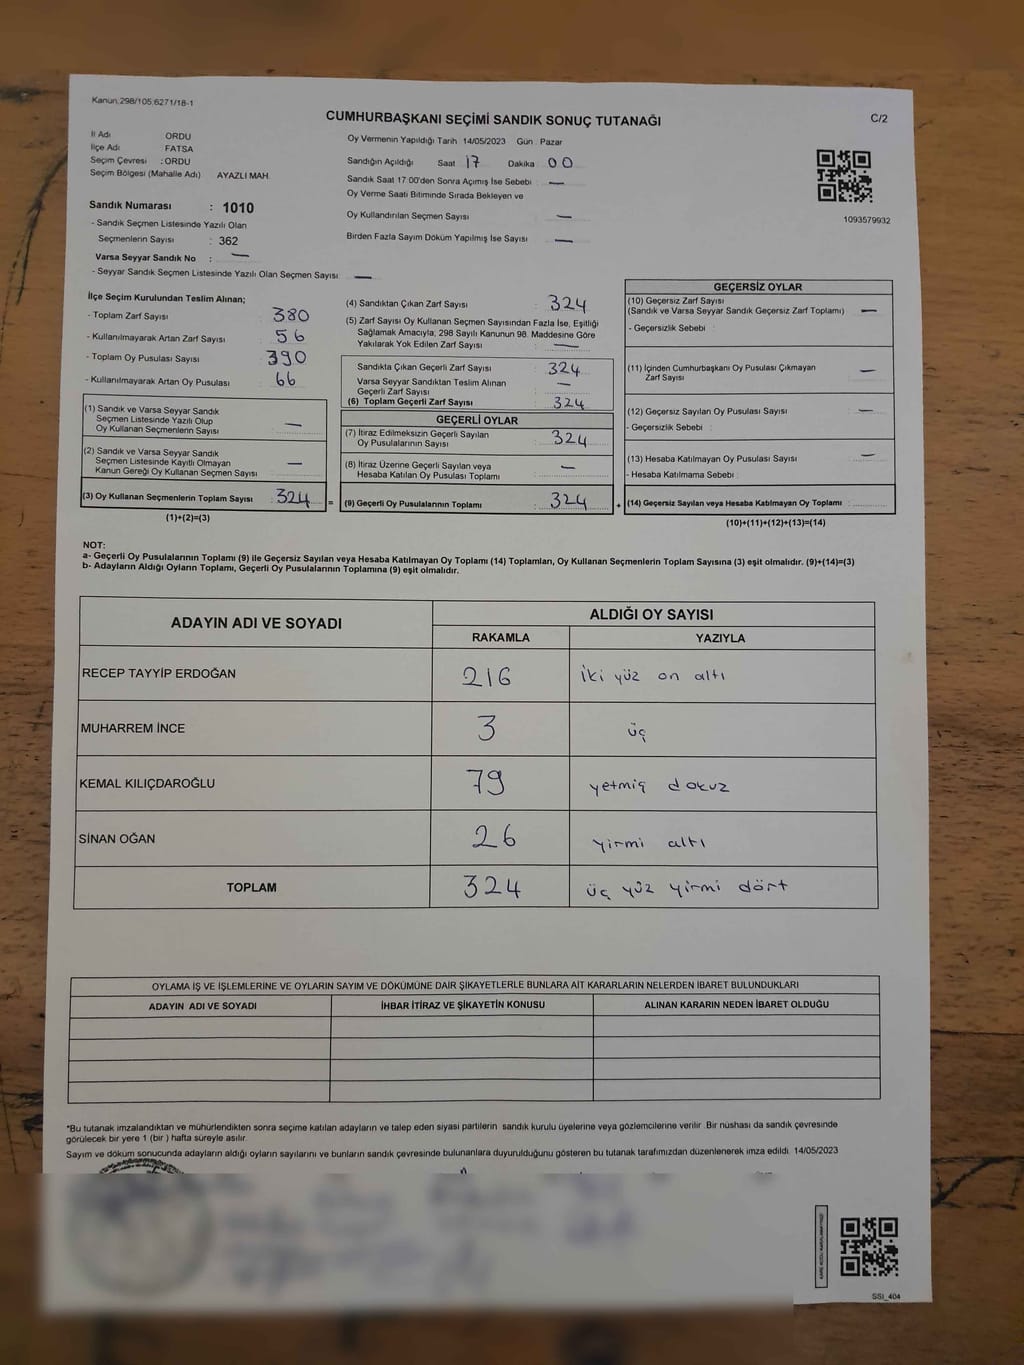 Kanun.298/105,6271/18-1
CUMHURBAŞKANI SEÇİMİ SANDIK SONUÇ TUTANAĞI
C/2
İl Adı ORDU
İlçe Adı FATSA
Seçim Çevresi : ORDU
Seçim Bölgesi (Mahalle Adı) AYAZLI MAH.
Oy Vermenin Yapıldığı Tarih 14/05/2023 Gün : Pazar
Sandığın Açıldığı Saat 17 Dakika 00
Sandık Saat 17:00'den Sonra Açımış İse Sebebi : —
Oy Verme Saati Bitiminde Sırada Bekleyen ve
Oy Kullandırılan Seçmen Sayısı —
Birden Fazla Sayım Döküm Yapılmış İse Sayısı —
1093579932
Sandık Numarası : 1010
- Sandık Seçmen Listesinde Yazılı Olan
Seçmenlerin Sayısı : 362
Varsa Seyyar Sandık No : —
- Seyyar Sandık Seçmen Listesinde Yazılı Olan Seçmen Sayısı : —
İlçe Seçim Kurulundan Teslim Alınan;
- Toplam Zarf Sayısı : 380
- Kullanılmayarak Artan Zarf Sayısı : 56
- Toplam Oy Pusulası Sayısı : 390
- Kullanılmayarak Artan Oy Pusulası : 66
(1) Sandık ve Varsa Seyyar Sandık
Seçmen Listesinde Yazılı Olup
Oy Kullanan Seçmenlerin Sayısı : —
(2) Sandık ve Varsa Seyyar Sandık
Seçmen Listesinde Kayıtlı Olmayan
Kanun Gereği Oy Kullanan Seçmen Sayısı : —
(3) Oy Kullanan Seçmenlerin Toplam Sayısı : 324 =
(1)+(2)=(3)
(4) Sandıktan Çıkan Zarf Sayısı : 324
(5) Zarf Sayısı Oy Kullanan Seçmen Sayısından Fazla İse, Eşitliği
Sağlamak Amacıyla, 298 Sayılı Kanunun 98. Maddesine Göre
Yakılarak Yok Edilen Zarf Sayısı : —
Sandıkta Çıkan Geçerli Zarf Sayısı : 324
Varsa Seyyar Sandıktan Teslim Alınan
Geçerli Zarf Sayısı : —
(6) Toplam Geçerli Zarf Sayısı : 324
GEÇERLİ OYLAR
(7) İtiraz Edilmeksizin Geçerli Sayılan
Oy Pusulalarının Sayısı : 324
(8) İtiraz Üzerine Geçerli Sayılan veya
Hesaba Katılan Oy Pusulası Toplamı : —
(9) Geçerli Oy Pusulalarının Toplamı : 324 +
GEÇERSİZ OYLAR
(10) Geçersiz Zarf Sayısı
(Sandık ve Varsa Seyyar Sandık Geçersiz Zarf Toplamı) : —
- Geçersizlik Sebebi :
(11) İçinden Cumhurbaşkanı Oy Pusulası Çıkmayan
Zarf Sayısı : —
(12) Geçersiz Sayılan Oy Pusulası Sayısı : —
- Geçersizlik Sebebi :
(13) Hesaba Katılmayan Oy Pusulası Sayısı : —
- Hesaba Katılmama Sebebi :
(14) Geçersiz Sayılan veya Hesaba Katılmayan Oy Toplamı :
(10)+(11)+(12)+(13)=(14)
NOT:
a- Geçerli Oy Pusulalarının Toplamı (9) ile Geçersiz Sayılan veya Hesaba Katılmayan Oy Toplamı (14) Toplamları, Oy Kullanan Seçmenlerin Toplam Sayısına (3) eşit olmalıdır. (9)+(14)=(3)
b- Adayların Aldığı Oyların Toplamı, Geçerli Oy Pusulalarının Toplamına (9) eşit olmalıdır.
ADAYIN ADI VE SOYADI
ALDIĞI OY SAYISI
RAKAMLA YAZIYLA
RECEP TAYYİP ERDOĞAN 216 iki yüz on altı
MUHARREM İNCE 3 üç
KEMAL KILIÇDAROĞLU 79 yetmiş dokuz
SİNAN OĞAN 26 yirmi altı
TOPLAM 324 üç yüz yirmi dört
OYLAMA İŞ VE İŞLEMLERİNE VE OYLARIN SAYIM VE DÖKÜMÜNE DAİR ŞİKAYETLERLE BUNLARA AİT KARARLARIN NELERDEN İBARET BULUNDUKLARI
ADAYIN ADI VE SOYADI İHBAR İTİRAZ VE ŞİKAYETİN KONUSU ALINAN KARARIN NEDEN İBARET OLDUĞU
*Bu tutanak imzalandıktan ve mühürlendikten sonra seçime katılan adayların ve talep eden siyasi partilerin sandık kurulu üyelerine veya gözlemcilerine verilir. Bir nüshası da sandık çevresinde
görülecek bir yere 1 (bir ) hafta süreyle asılır.
Sayım ve döküm sonucunda adayların aldığı oyların sayılarını ve bunların sandık çevresinde bulunanlara duyurulduğunu gösteren bu tutanak tarafımızdan düzenlenerek imza edildi. 14/05/2023
SSI_404